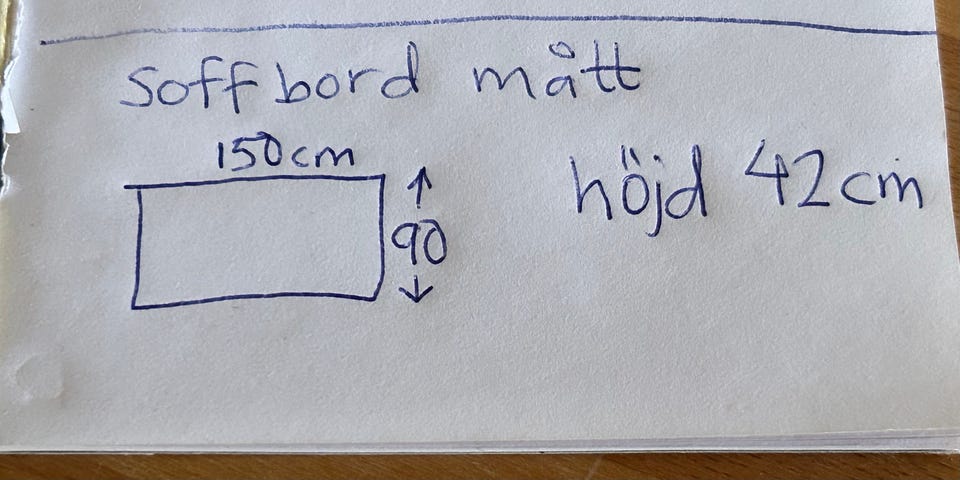 soffbord mått
150cm
↑
90
↓
höjd 42cm